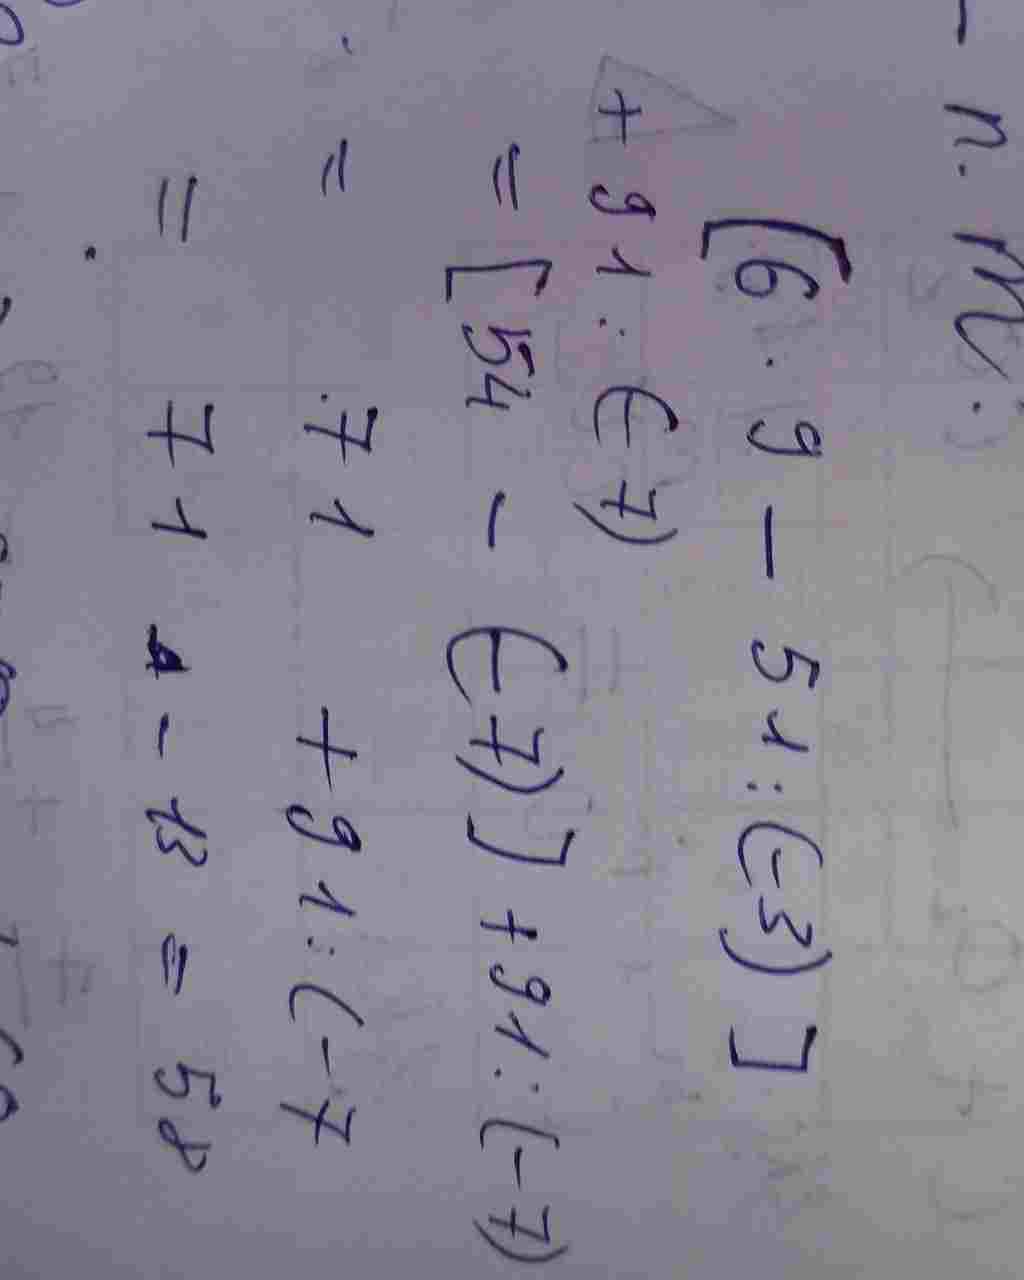 - n. m:
[6 . 9 - 51 : (-3)]
+ 91 : (-7)
= [54 - (-7)] + 91 : (-7)
= 71 + 91 : (-7
= 71 - 13 = 58